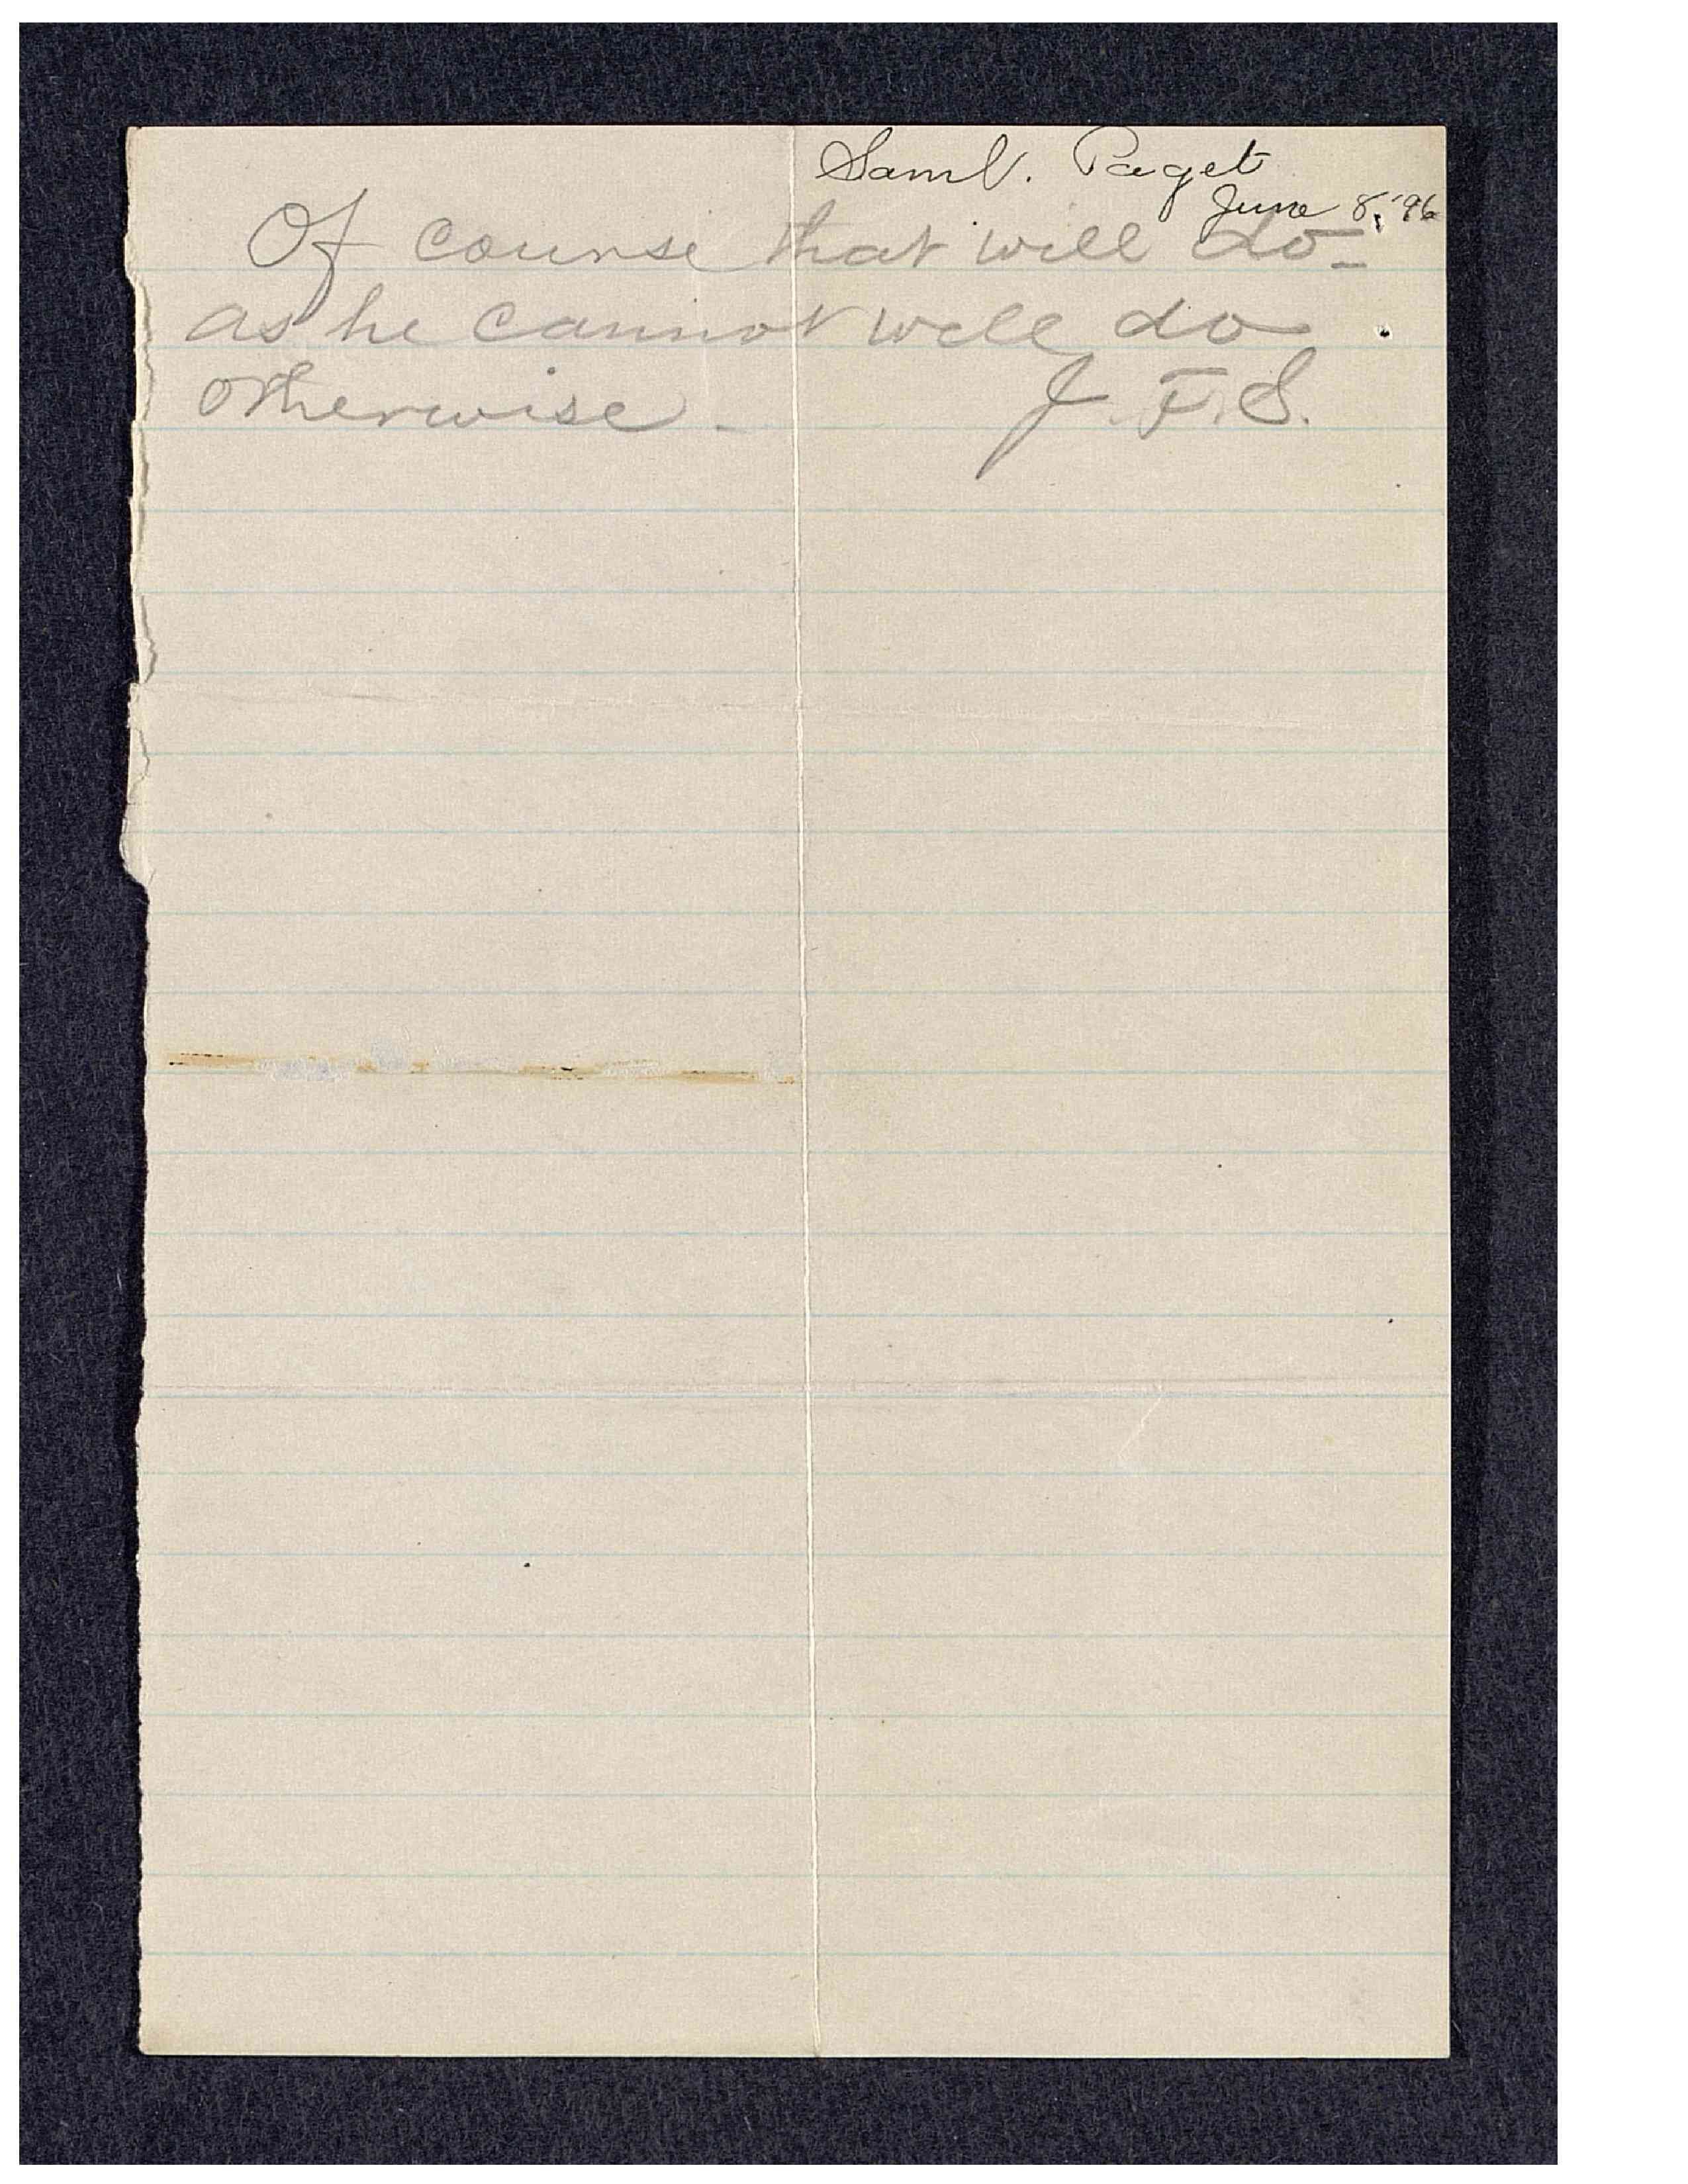 Saml. Paget
June 8, '96
Of course that will do -
as he cannot well do
otherwise - J. F. S.